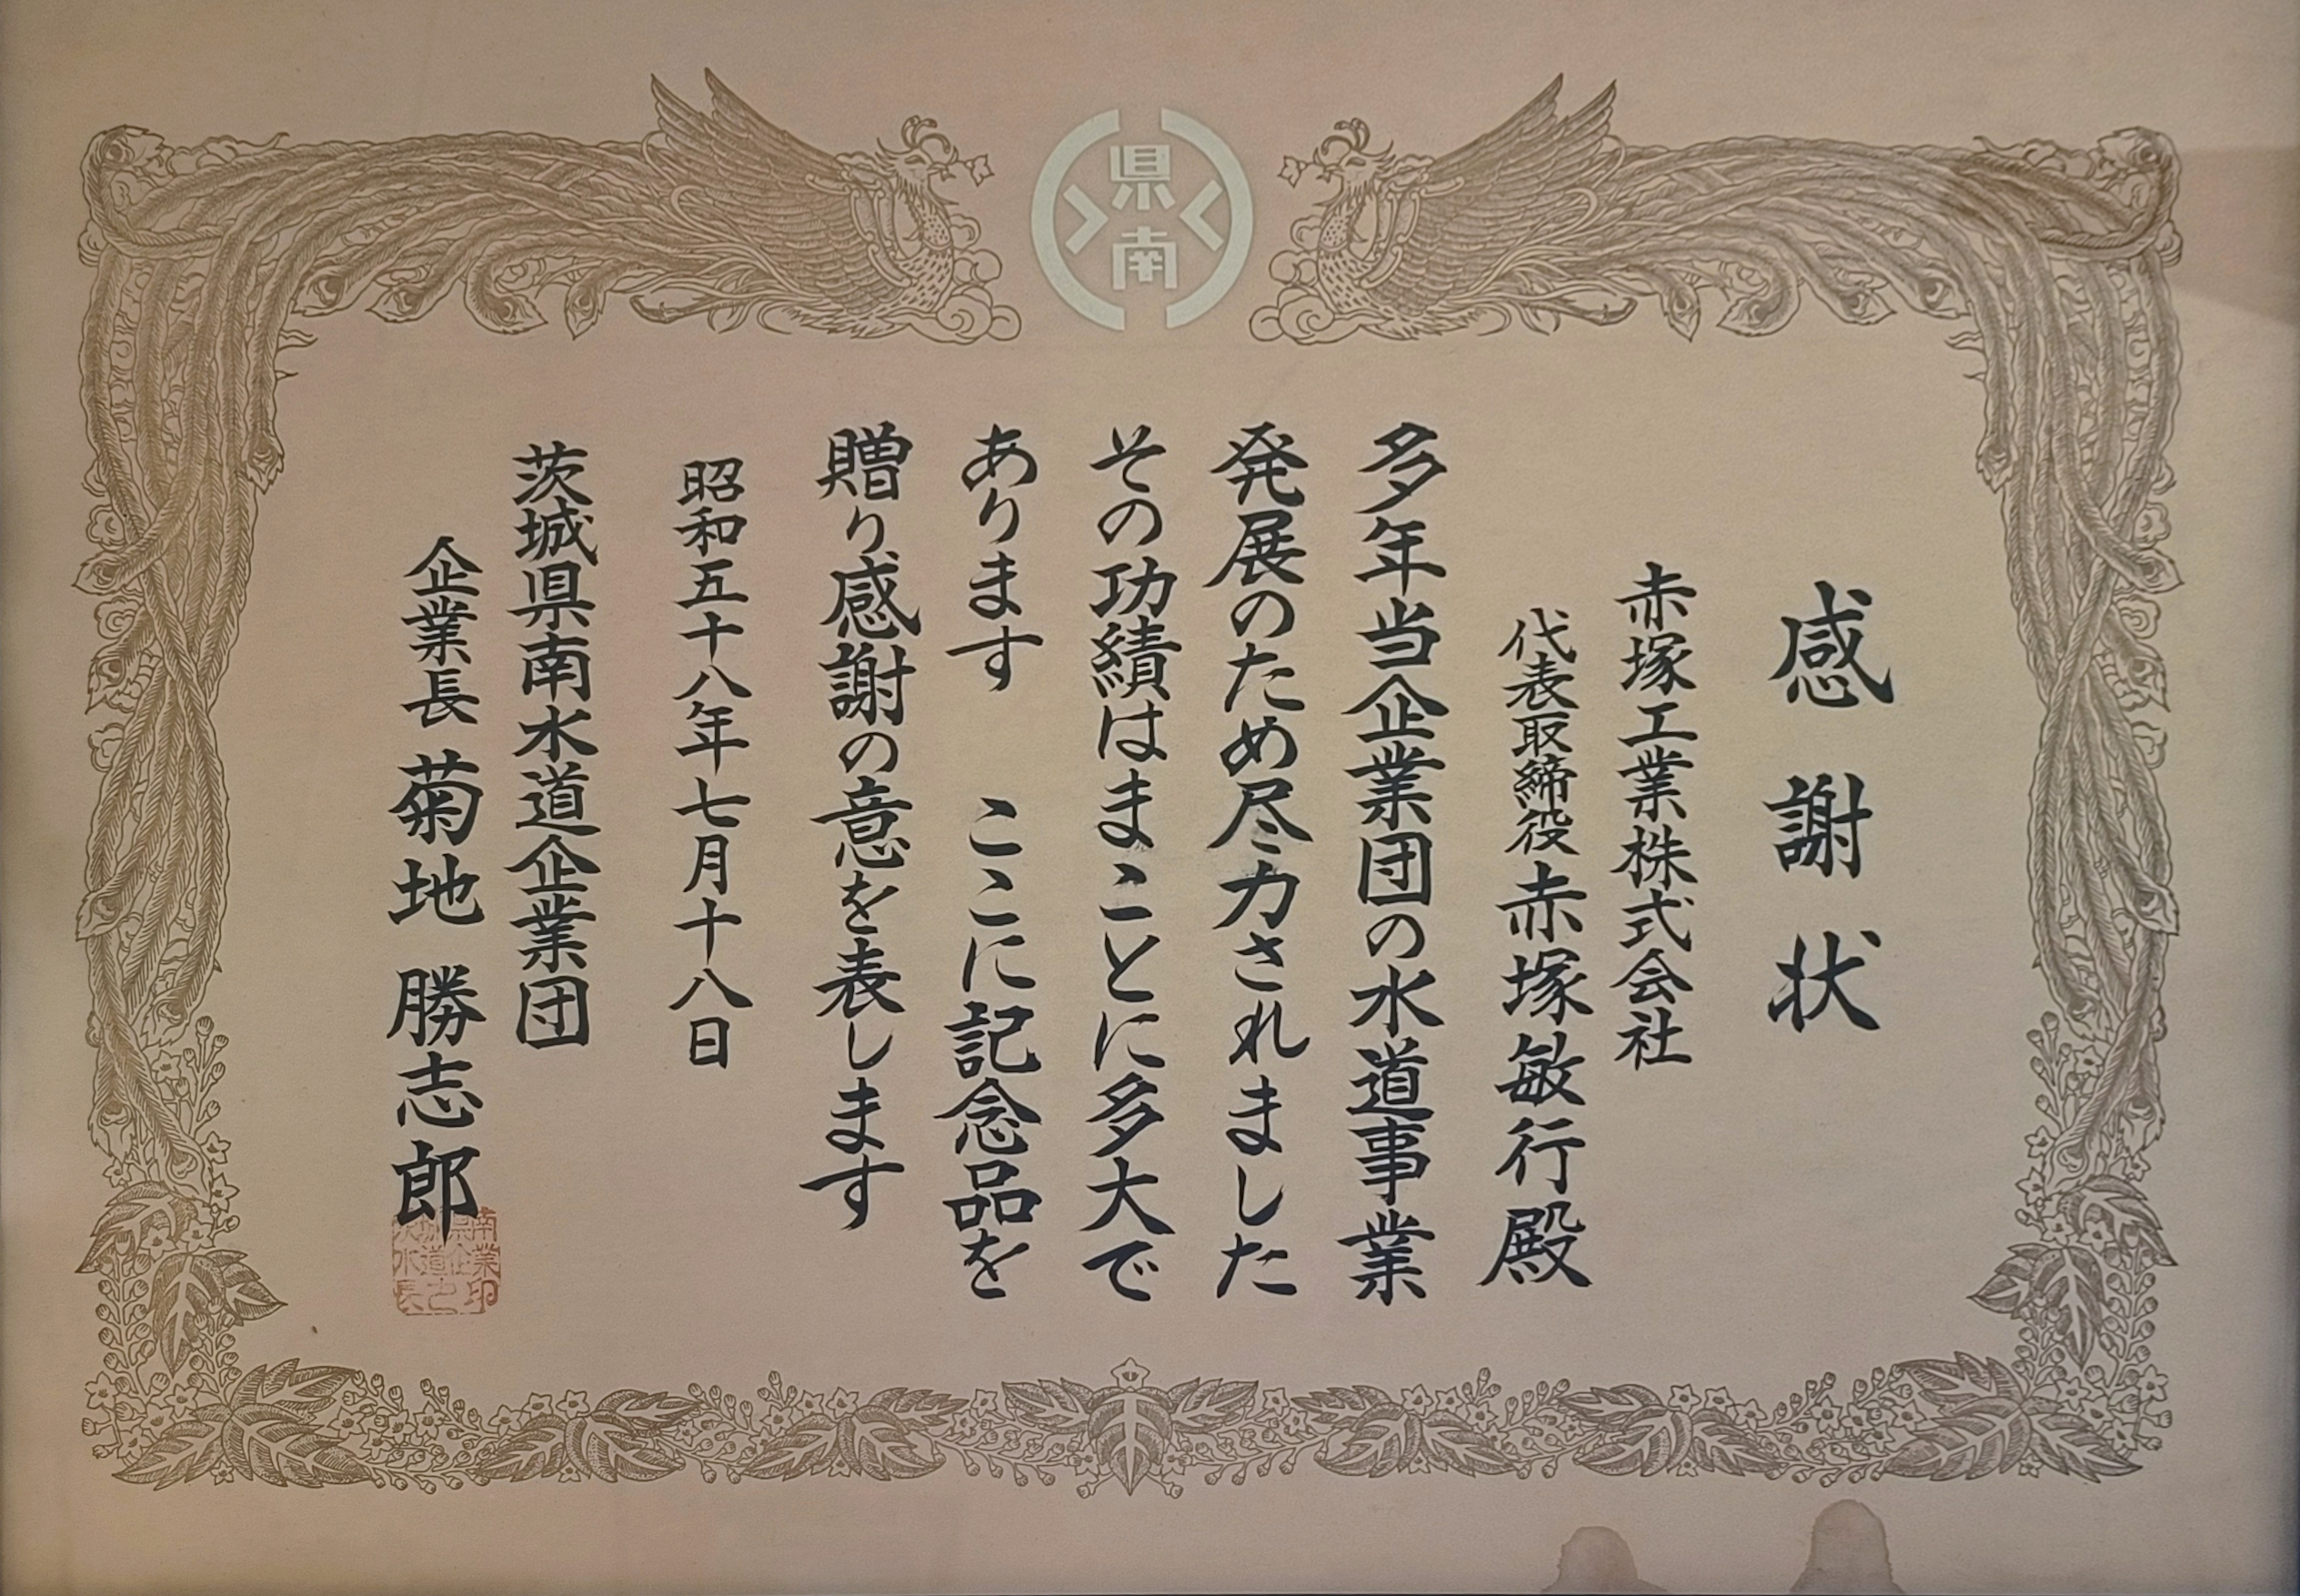 県南
感謝状
赤塚工業株式会社
代表取締役赤塚敏行殿
多年当企業団の水道事業
発展のため尽力されました
その功績はまことに多大で
あります ここに記念品を
贈り感謝の意を表します
昭和五十八年七月十八日
茨城県南水道企業団
企業長 菊地勝志郎